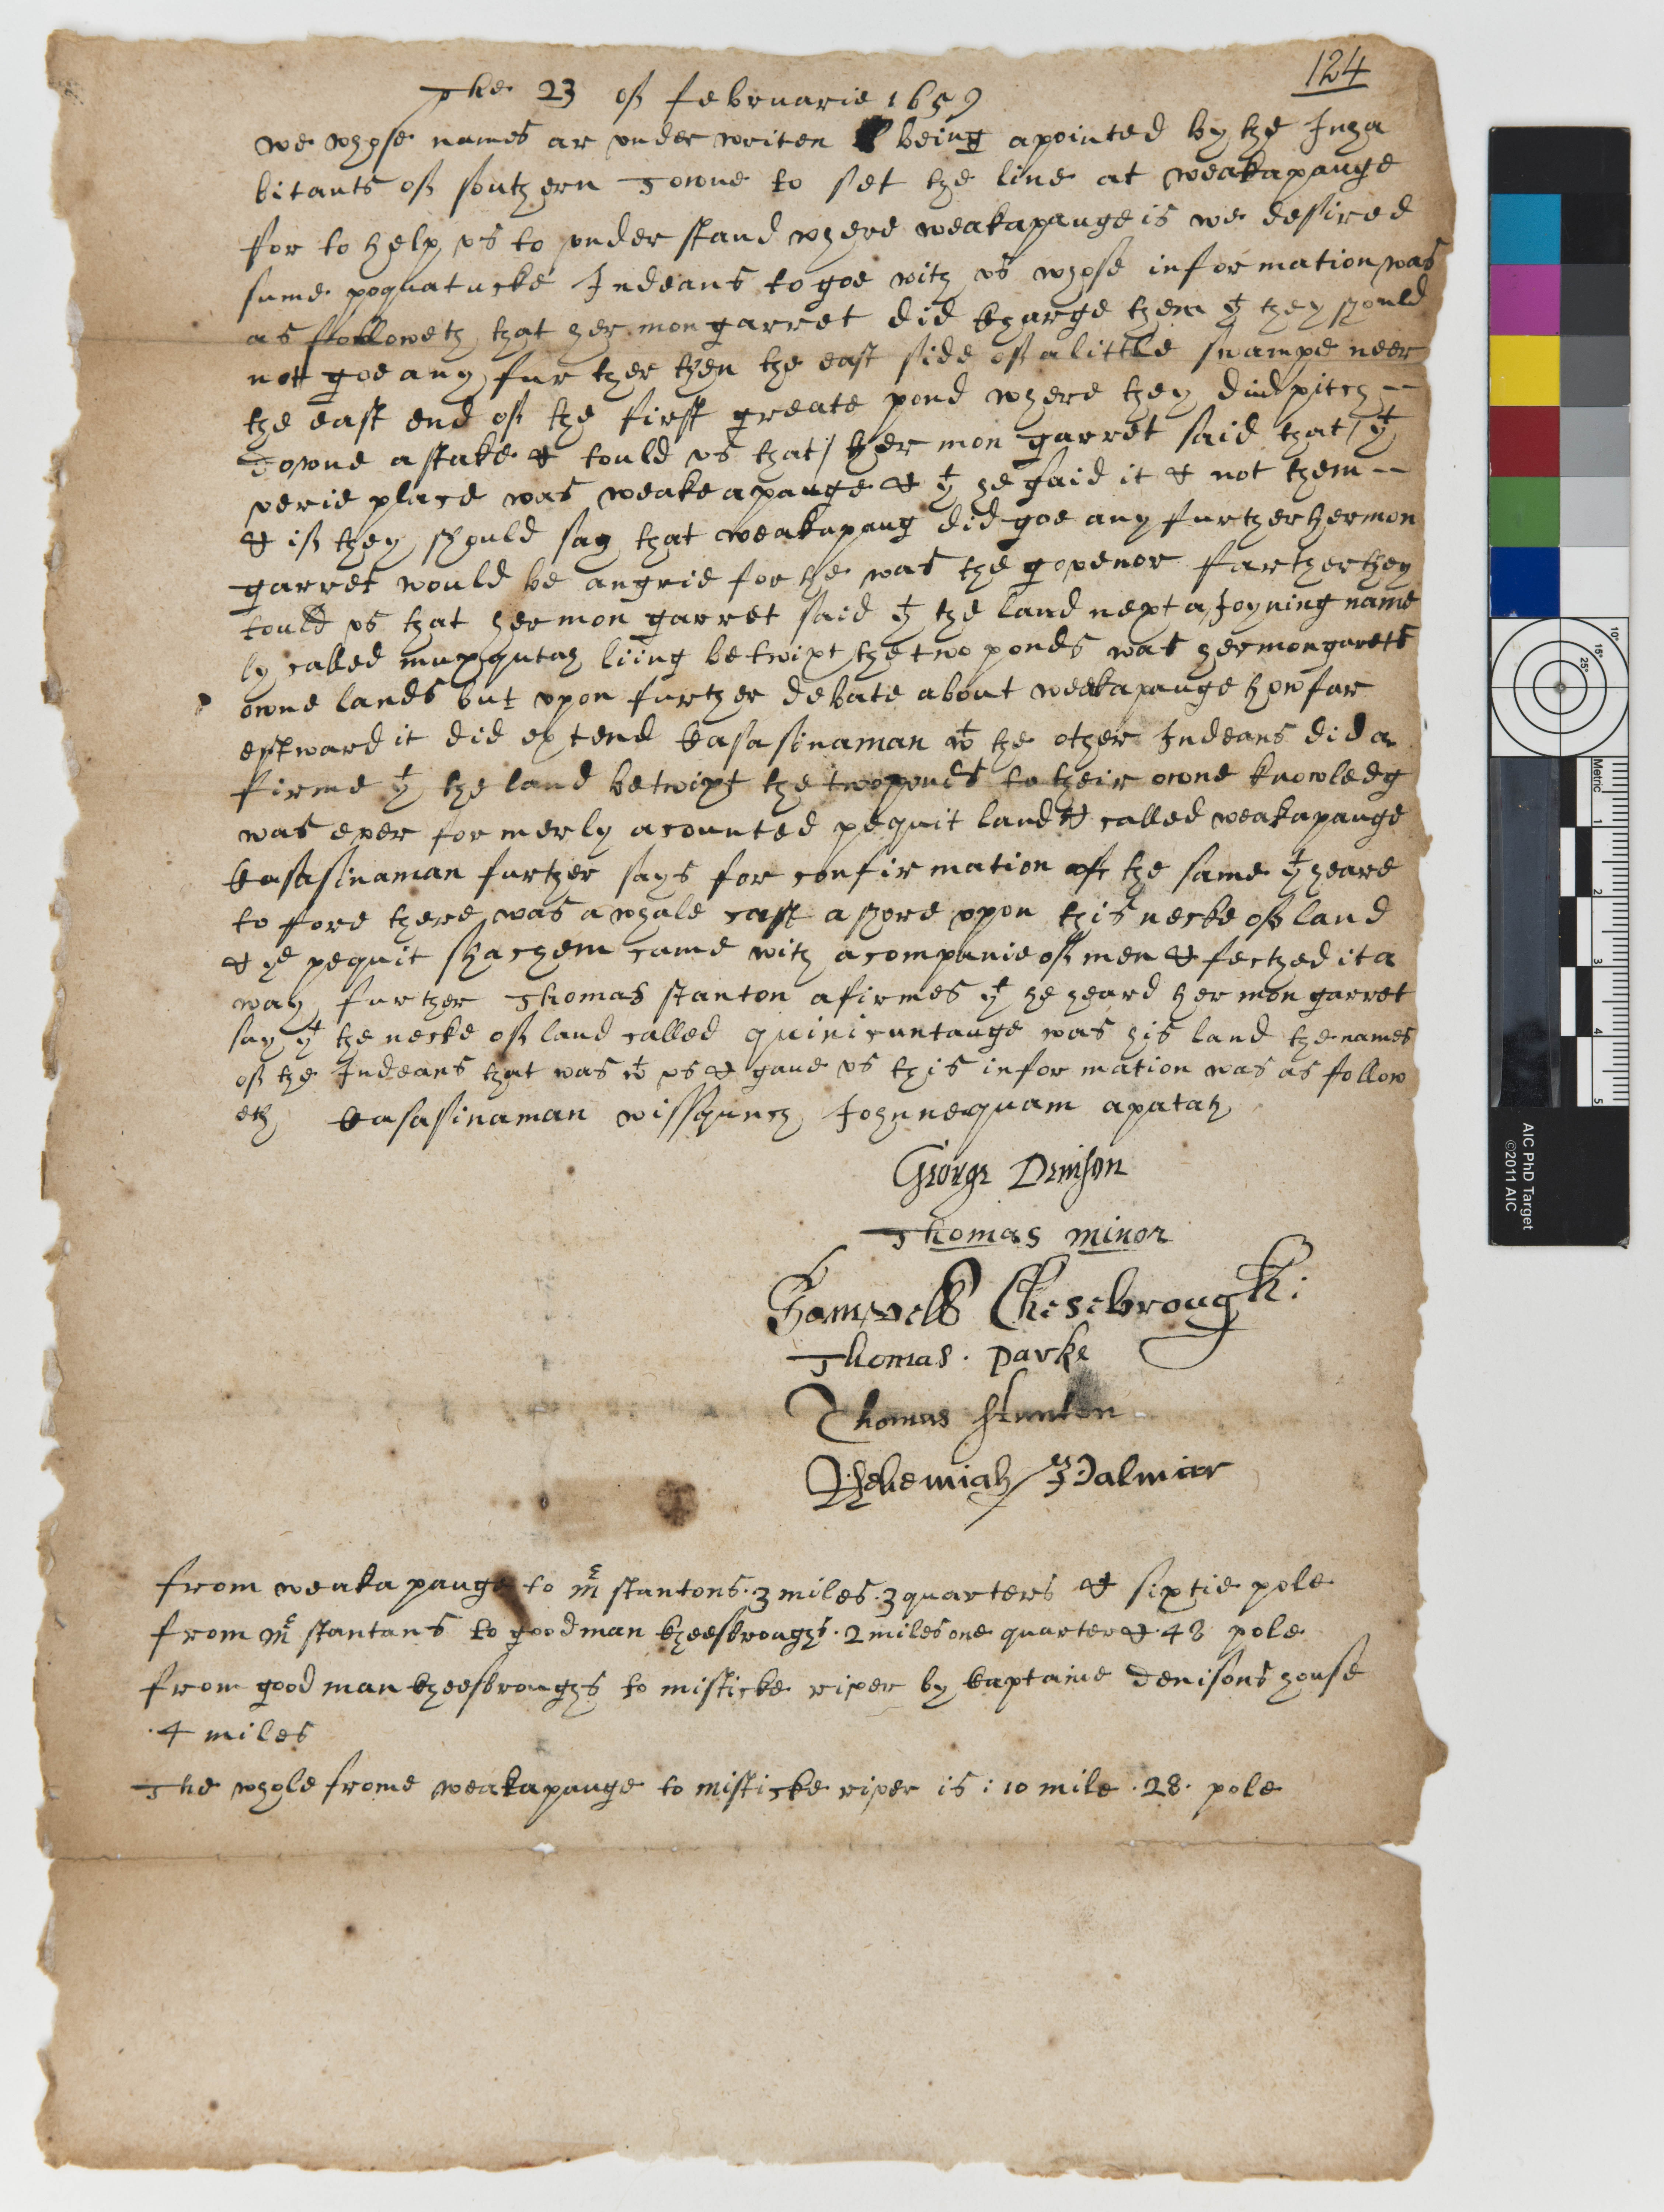 124
The 23 of februarie 1659
we whose names ar under writen being apointed by the Inha
bitants of southern Towne to set the line at weakapauge
for to help us to under stand where weakapauge is we desired
sume poquatucke Indeans to goe with us whose information was
as followeth that hermon garret did kharge them yt they should
not goe any further then the east side of a little swampe neer
the east end of the first greate pond where they did pitch —
downe a stake & tould us that hermon garret said that yt
verie place was weakeapauge & yt he said it & not them —
& if they should say that weakapaug did goe any further hermon
garret would be angrie for he was the govenor further they
tould us that hermon garret said yt the land next a Joyning name
ly called muxqutah liing betwixt the two ponds was hermon garets
owne lands but upon further debate about weakapauge how far
estward it did extend kasasinaman wt the other Indeans did a
firme yt the land betwixt the two ponds to their owne knowledg
was ever formerly acounted pequit land & called weakapauge
kasasinaman further says for confirmation of the same yt heare
to fore there was a whale cast a shore upon this necke of land
& ye pequit shachem came with a companie of men & fetched it a
way further Thomas stanton afirmes yt he heard hermon garret
say yt the necke of land called quinicuntauge was his land the names
of the Indeans that was wt us & gave us this information was as follow
eth kasasinaman wissqunch John nequam apatah
George Denison
Thomas minor
Samuell Chesebrough:
Thomas. parke
Thomas Stanton
Nehemiah Palmer
from weakapauge to mr stantons. 3 miles. 3 quarters & sixtie pole
from mr stantans to goodman kheesbroughs. 2 miles one quarter &. 48 pole
from goodman kheesbroughs to misticke river by kaptaine denisons house
. 4 miles
The whole frome weakapauge to misticke river is: 10 mile. 28. pole
10°
15°
25°
Metric
1
2
3
4
5
AIC PhD Target
©2011 AIC